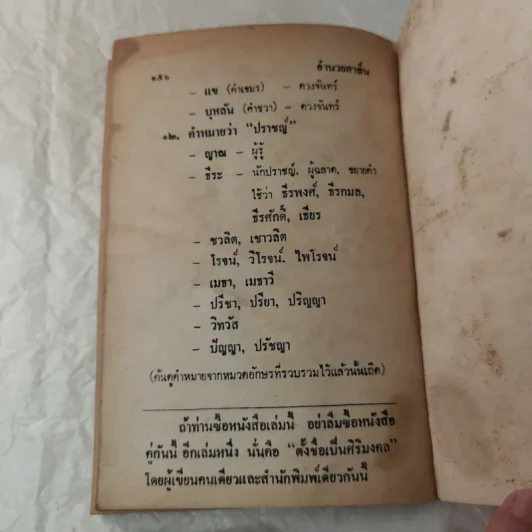 ๑๕๖ อำนวยสาส์น
– แข (คำเขมร) – ดวงจันทร์
– บุหลัน (คำชวา) – ดวงจันทร์
๑๒. คำหมายว่า “ปราชญ์”
– ญาณ – ผู้รู้
– ธีระ – นักปราชญ์, ผู้ฉลาด, ขยายคำ
ใช้ว่า ธีรพงศ์, ธีรกมล,
ธีรศักดิ์, เธียร
– ชวลิต, เชาวลิต
– โรจน์, วิโรจน์, ไพโรจน์
– เมธา, เมธาวี
– ปรีชา, ปรียา, ปริญญา
– วิทวัส
– ปัญญา, ปรัชญา
(ค้นดูคำหมายจากหมวดอักษรที่รวบรวมไว้แล้วนั้นเถิด)
ถ้าท่านซื้อหนังสือเล่มนี้ อย่าลืมซื้อหนังสือ
คู่กันนี้ อีกเล่มหนึ่ง นั่นคือ “ตั้งชื่อเป็นศิริมงคล”
โดยผู้เขียนคนเดียวและสำนักพิมพ์เดียวกันนี้